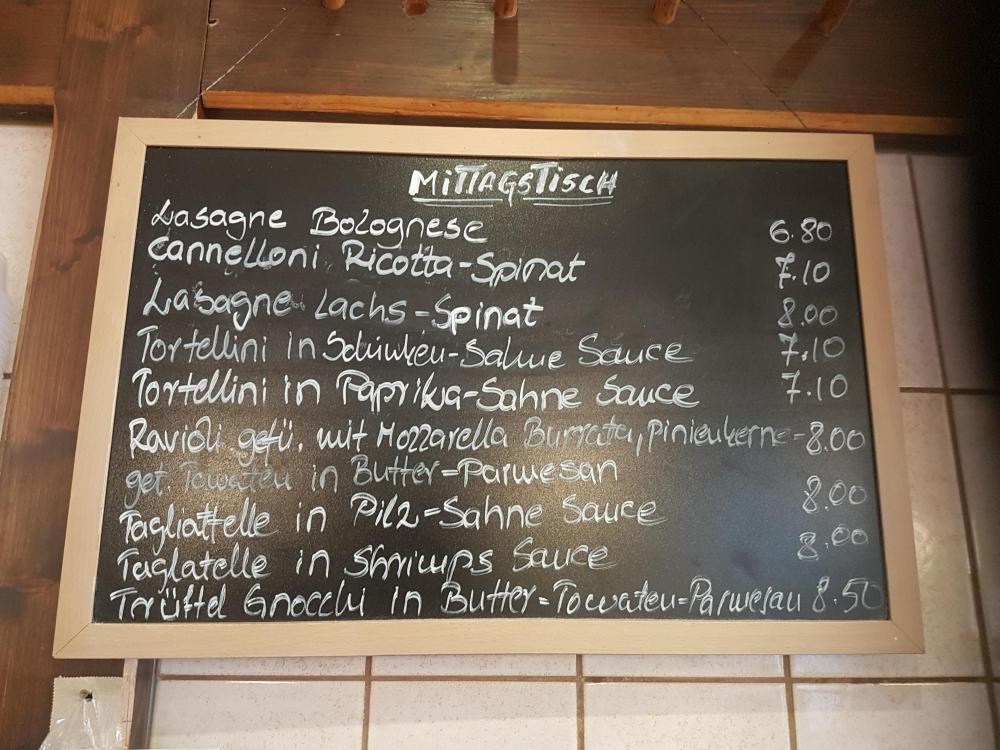 MITTAGSTISCH
Lasagne Bolognese 6.80
Cannelloni Ricotta-Spinat 7.10
Lasagne Lachs-Spinat 8.00
Tortellini in Schinken-Sahne Sauce 7.10
Tortellini in Paprika-Sahne Sauce 7.10
Ravioli gefü. mit Mozzarella Burrata, Pinienkerne- 8.00
get. Tomaten in Butter-Parmesan
Tagliattelle in Pilz-Sahne Sauce 8.00
Taglatelle in Shrimps Sauce 8.00
Trüffel Gnocchi in Butter-Tomaten-Parmesan 8.50